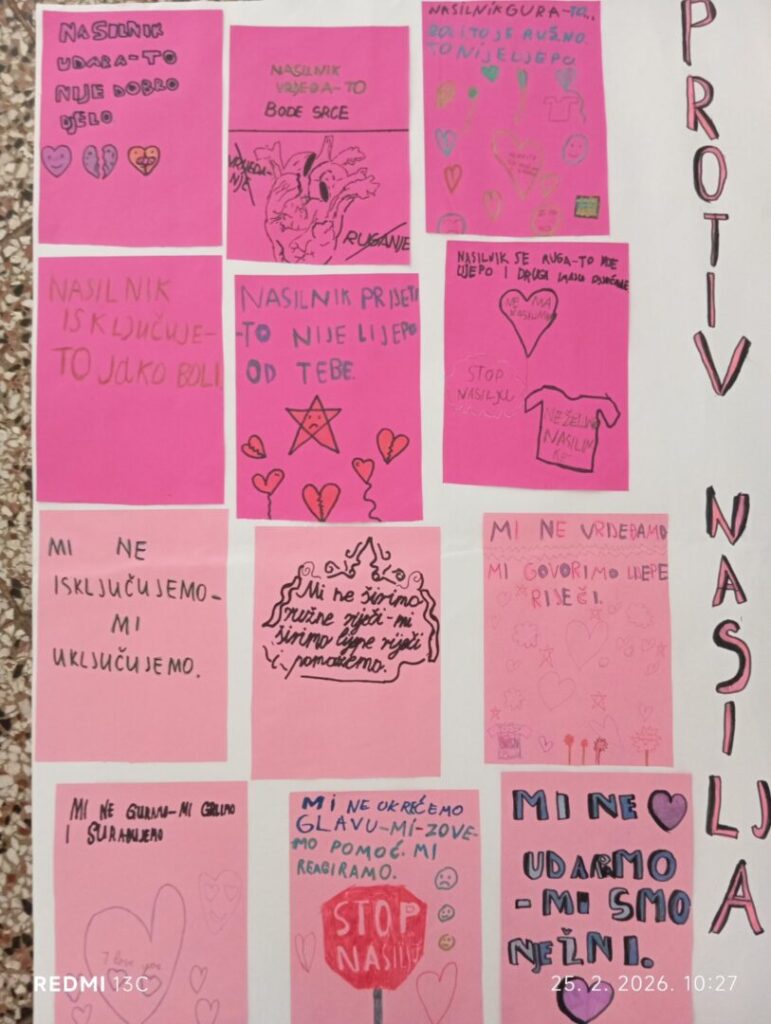 PROTIV NASILJA
NASILNIK
UDARA-TO
NIJE DOBRO
DJELO
NASILNIK
VRIJEĐA-TO
BODE SRCE
VRIJEĐA-
NJE
RUGANJE
NASILNIK GURA-TO..
BOLI TO JE RUŽNO.
TO NIJE LJEPO
NASILNIK
ISKLJUČUJE-
TO JAKO BOLI
NASILNIK PRIJETI
-TO NIJE LIJEPO
OD TEBE.
NASILNIK SE RUGA-TO NIJE
LIJEPO I DRUGA
NE MA
NASILJU
STOP
NASILJU
NEŽELIM
NASILJE
MI NE
ISKLJUČUJEMO-
MI
UKLJUČUJEMO.
Mi ne širimo
ružne riječi-mi
širimo lijepe riječi
i pomažemo.
MI NE VRIJEĐAMO
MI GOVORIMO LIJEPE
RIJEČI.
MI NE GURAMO-MI GRLIMO
I SURAĐUJEMO
I love you
MI NE OKREĆEMO
GLAVU-MI-ZOVE-
MO POMOĆ. MI
REAGIRAMO.
STOP
NASILJU
MI NE
UDARMO
- MI SMO
NJEŽNI.
REDMI 13C
25. 2. 2026. 10:27